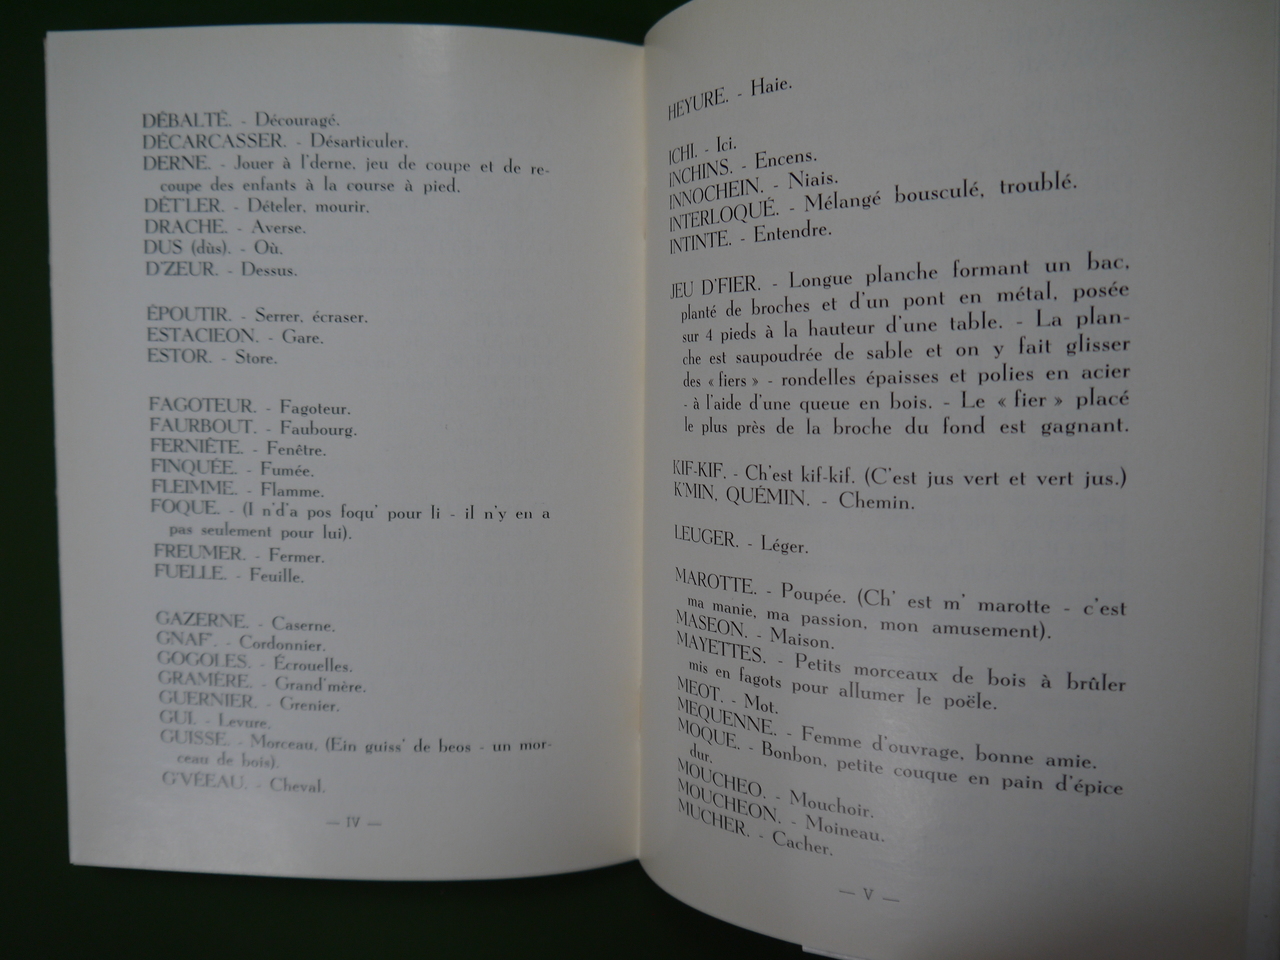 DÉBALTÉ. - Découragé.
DÉCARCASSER. - Désarticuler.
DERNE. - Jouer à l'derne, jeu de coupe et de re-
coupe des enfants à la course à pied.
DÉT'LER. - Dételer, mourir.
DRACHE. - Averse.
DUS (dùs). - Où.
D'ZEUR. - Dessus.
ÉPOUTIR. - Serrer, écraser.
ESTACIEON. - Gare.
ESTOR. - Store.
FAGOTEUR. - Fagoteur.
FAURBOUT. - Faubourg.
FERNIÈTE. - Fenêtre.
FINQUÉE. - Fumée.
FLEIMME. - Flamme.
FOQUE. - (I n'd'a pos foqu' pour li - il n'y en a
pas seulement pour lui).
FREUMER. - Fermer.
FUELLE. - Feuille.
GAZERNE. - Caserne.
GNAF'. - Cordonnier.
GOGOLES. - Écrouelles.
GRAMÈRE. - Grand'mère.
GUERNIER. - Grenier.
GUI. - Levure.
GUISSE. - Morceau. (Ein guiss' de beos - un mor-
ceau de bois).
G'VÉEAU. - Cheval.
— IV —
HEYURE. - Haie.
ICHI. - Ici.
INCHINS. - Encens.
INNOCHEIN. - Niais.
INTERLOQUÉ. - Mélangé bousculé, troublé.
INTINTE. - Entendre.
JEU D'FIER. - Longue planche formant un bac,
planté de broches et d'un pont en métal, posée
sur 4 pieds à la hauteur d'une table. - La plan-
che est saupoudrée de sable et on y fait glisser
des « fiers » - rondelles épaisses et polies en acier
- à l'aide d'une queue en bois. - Le « fier » placé
le plus près de la broche du fond est gagnant.
KIF-KIF. - Ch'est kif-kif. (C'est jus vert et vert jus.)
K'MIN, QUÉMIN. - Chemin.
LEUGER. - Léger.
MAROTTE. - Poupée. (Ch' est m' marotte - c'est
ma manie, ma passion, mon amusement).
MASEON. - Maison.
MAYETTES. - Petits morceaux de bois à brûler
mis en fagots pour allumer le poële.
MEOT. - Mot.
MEQUENNE. - Femme d'ouvrage, bonne amie.
MOQUE. - Bonbon, petite couque en pain d'épice
dur.
MOUCHEO. - Mouchoir.
MOUCHEON. - Moineau.
MUCHER. - Cacher.
— V —